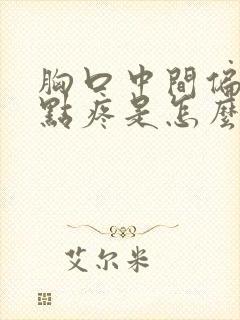 胸口中間偏
點疼是怎麼
艾尔米